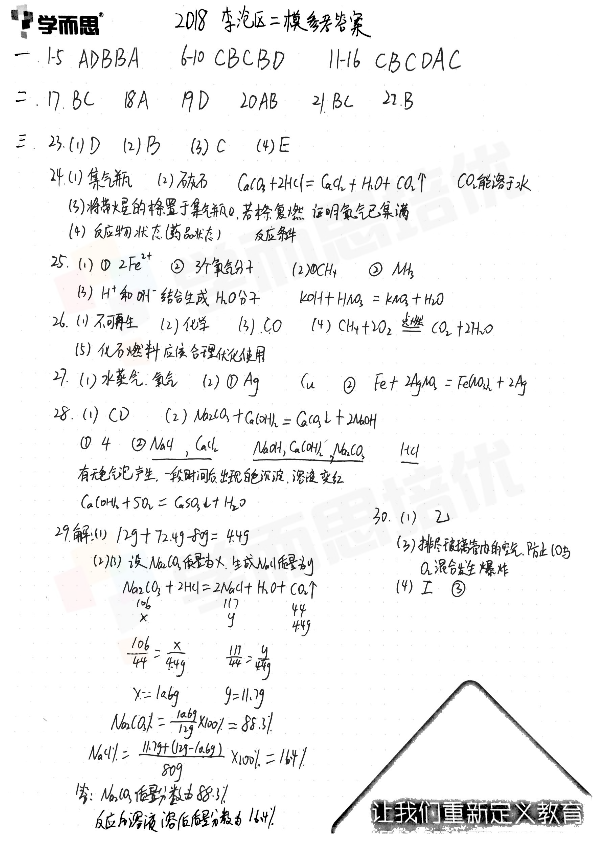 学而思
2018 李沧区二模参考答案
一. 1-5 ADBBA 6-10 CBCBD 11-16 CBCDAC
二. 17. BC 18A 19D 20AB 21. BC 22. B
三. 23. (1) D (2) B (3) C (4) E
24. (1) 集气瓶 (2) 石灰石 CaCO₃+2HCl = CaCl₂+H₂O+CO₂↑ CO₂能溶于水
(3) 将带火星的木条置于集气瓶口,若木条复燃 证明氧气已集满
(4) 反应物状态(药品状态) 反应条件
25. (1) ① 2Fe²⁺ ② 3个氧气分子 (2) ① CH₄ ② NH₃
(3) H⁺和OH⁻结合生成H₂O分子 KOH+HNO₃ = KNO₃+H₂O
26. (1) 不可再生 (2) 化学 (3) CO (4) CH₄+2O₂ 点燃 CO₂+2H₂O
(5) 化石燃料应该合理优化使用
27. (1) 水蒸气、氧气 (2) ① Ag Cu ② Fe+2AgNO₃ = Fe(NO₃)₂+2Ag
28. (1) CD (2) Na₂CO₃+Ca(OH)₂ = CaCO₃↓+2NaOH
① 4 ② NaCl, CaCl₂ NaOH, Ca(OH)₂, Na₂CO₃ HCl
有无色气泡产生,一段时间后出现白色沉淀,溶液变红
Ca(OH)₂+SO₂ = CaSO₃↓+H₂O
29. 解:(1) 12g+72.4g-80g=4.4g
(2)(3) 设Na₂CO₃质量为x,生成NaCl质量为y
Na₂CO₃+2HCl = 2NaCl+H₂O+CO₂↑
106 117 44
x y 4.4g
106/44 = x/4.4g 117/44 = y/4.4g
x=10.6g y=11.7g
Na₂CO₃% = 10.6g/12g ×100% = 88.3%
NaCl% = 11.7g+(12g-10.6g)/80g ×100% = 16.4%
答: Na₂CO₃质量分数为88.3%
反应后溶液溶质质量分数为16.4%
30. (1) 乙
(3) 排尽玻璃管内的空气,防止CO与
O₂混合发生爆炸
(4) I ③
让我们重新定义教育
学而思培优